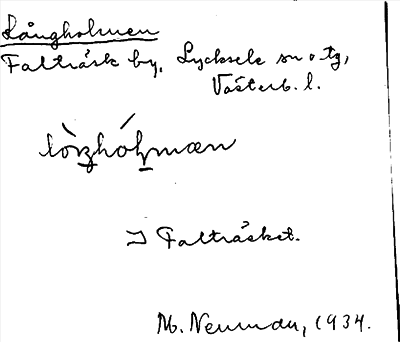 Långholmen
Falträsk by, Lycksele sn o tg,
Västerb. l.
i Falträsket.
M. Neuman, 1934.